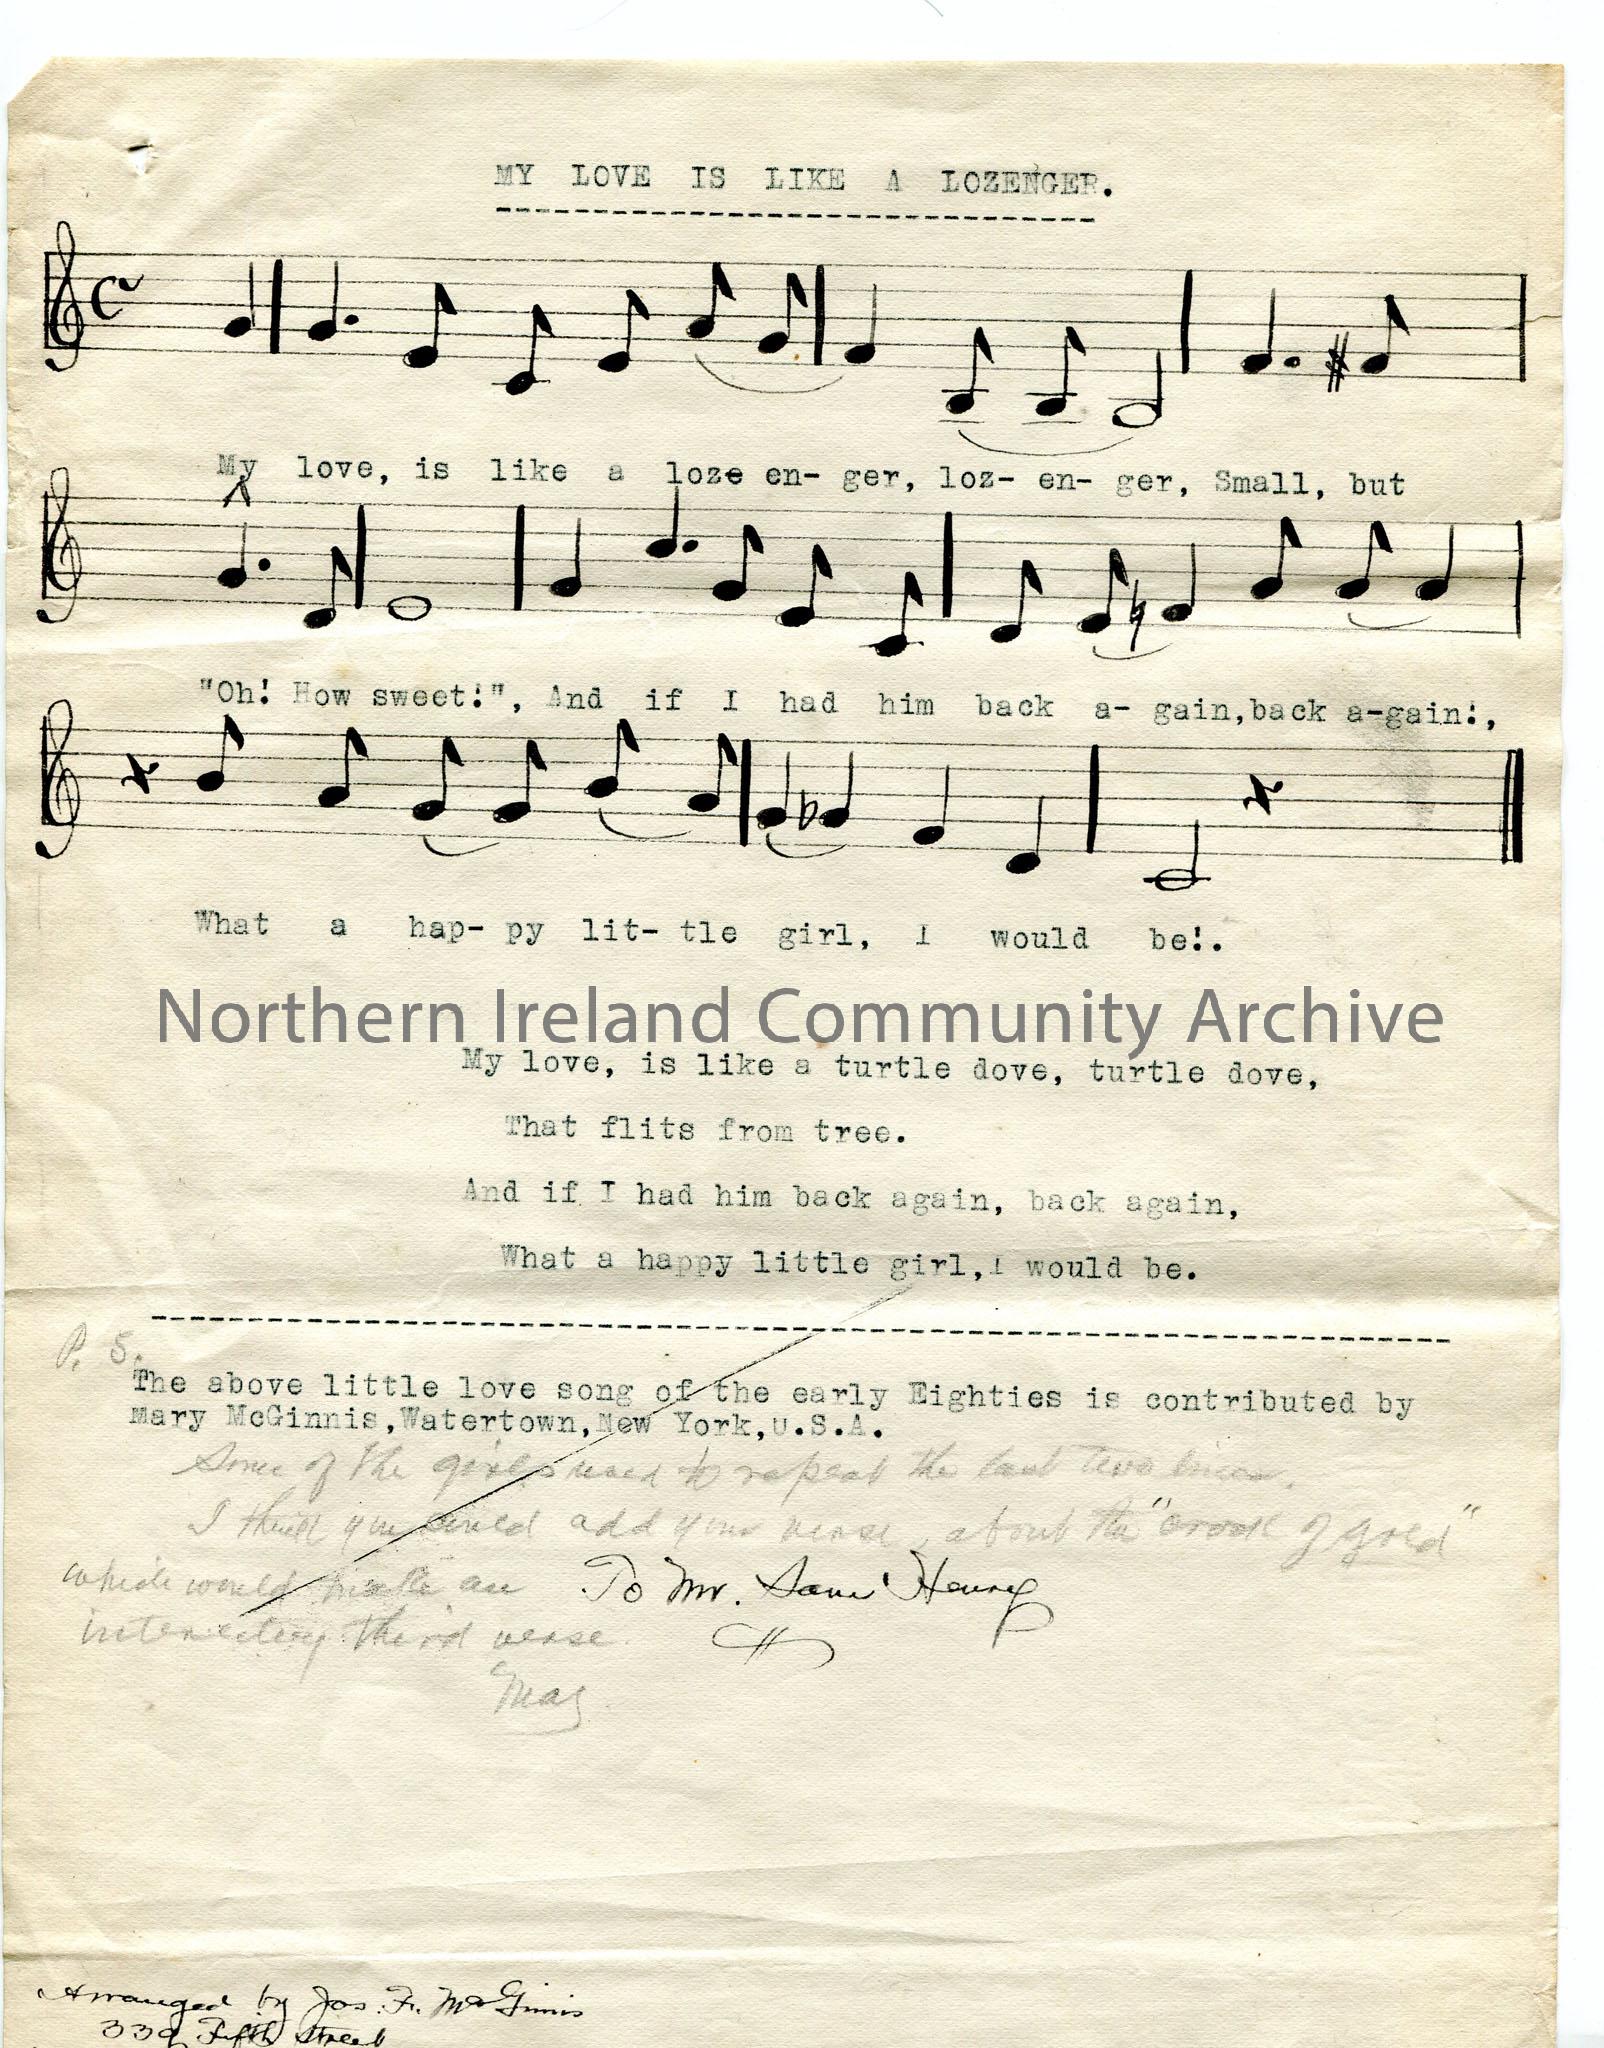 MY LOVE IS LIKE A LOZENGER.
My love, is like a loze en- ger, loz- en- ger, Small, but
"Oh! How sweet!", And if I had him back a- gain,back a-gain!,
What a hap- py lit- tle girl, I would be!.
Northern Ireland Community Archive
My love, is like a turtle dove, turtle dove,
That flits from tree.
And if I had him back again, back again,
What a happy little girl,I would be.
P. S.
The above little love song of the early Eighties is contributed by
Mary McGinnis,Watertown,New York,U.S.A.
Some of the girls used to repeat the last two lines.
I think you could add your verse, about the "crock of gold"
which would make an
interesting third verse.
To Mr. Sam Henry
May
Arranged by Jos. F. McGinnis
339 Fifth Street